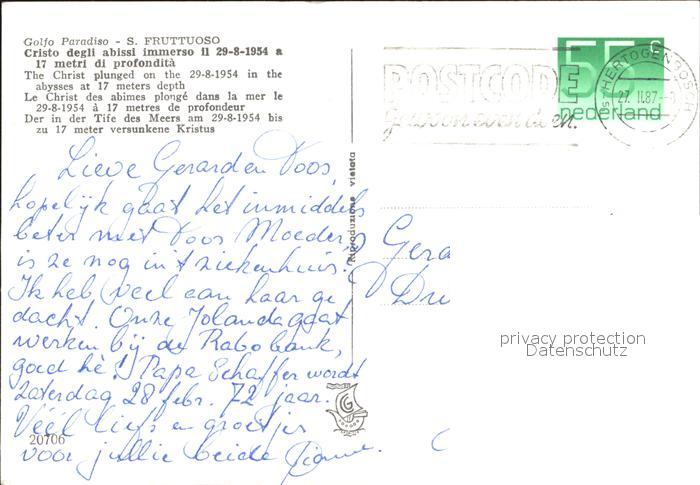 Golfo Paradiso - S. FRUTTUOSO
Cristo degli abissi immerso il 29-8-1954 a
17 metri di profondità
The Christ plunged on the 29-8-1954 in the
abysses at 17 meters depth
Le Christ des abimes plongé dans la mer le
29-8-1954 à 17 metres de profondeur
Der in der Tife des Meers am 29-8-1954 bis
zu 17 meter versunkene Kristus
Lieve Gerard en Toos,
hopelijk gaat het inmiddels
beter met Toos Moeder,
is ze nog in 't ziekenhuis?
Ik heb veel aan haar ge
dacht. Onze Jolanda gaat
werken bij de Rabobank,
goed hè! Papa Schaffer wordt
zaterdag 28 febr. 72 jaar.
Véél liefs en groetjes
voor jullie beide
20706
Riproduzione vietata
POSTCODE
gewoon even doen.
55 c
nederland
'S-HERTOGENBOSCH
27.II.87
Gera
Dru
privacy protection
Datenschutz